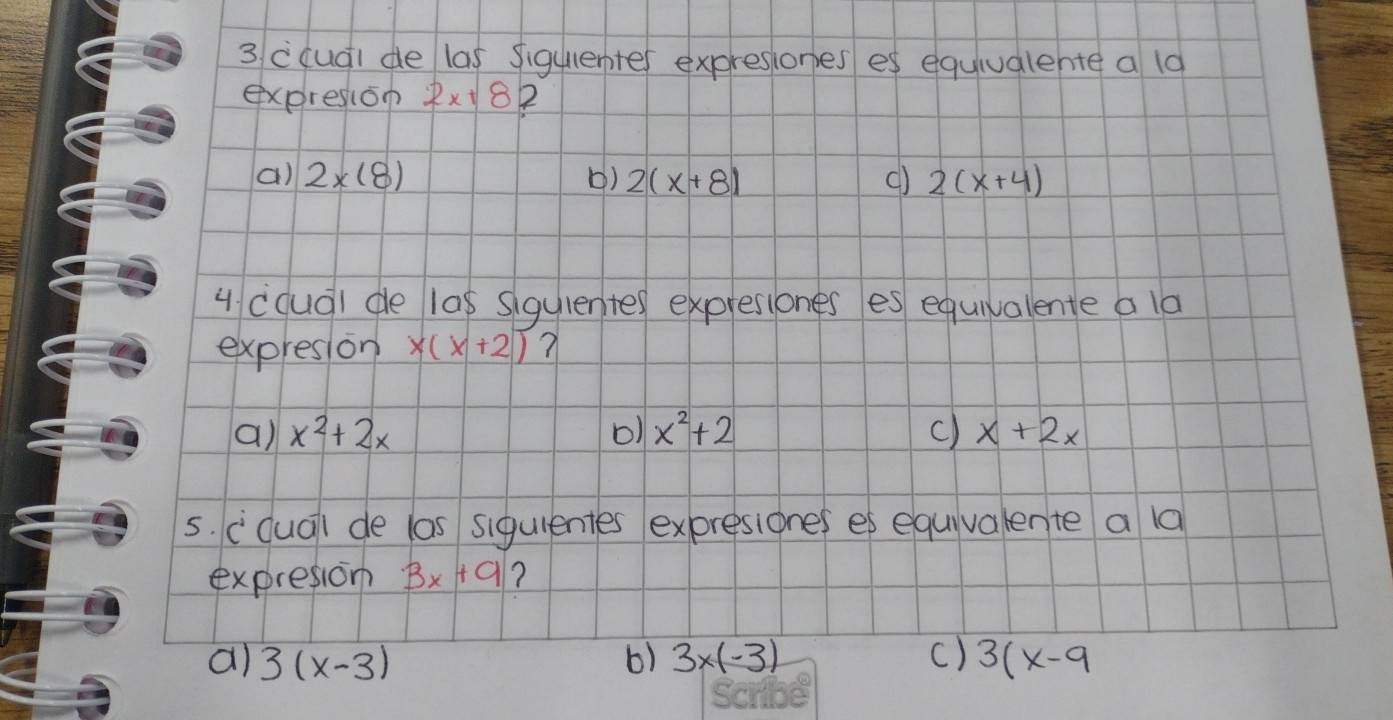 3/¿cuál de las siguientes expresiones es equivalente a la
expresión 2x+8?
a) 2x(8) b) 2(x+8) c) 2(x+4)
4. ¿cuál de las siguientes expresiones es equivalente a la
expresión x(x+2)?
a) x²+2x b) x²+2 c) x+2x
5. ¿cuál de las siguientes expresiones es equivalente a la
expresión 3x+9?
a) 3(x-3) b) 3x(-3) c) 3(x-9
Scribe®